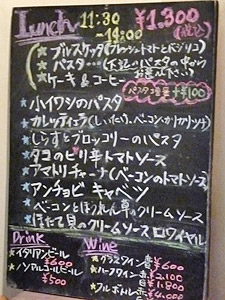 Lunch 11:30
~14:00 ¥1,300
(税込)
★ブルスケッタ(フレッシュトマトとバジリコ)
★パスタ…(下記のパスタの中から
お選び下さい)
★ケーキ&コーヒー
パスタ大盛 +¥100
★小イワシのパスタ
★カレッティエラ(しいたけ、ベーコン、かつおだし)
★しらすとブロッコリーのパスタ
★タコのピリ辛トマトソース
★アマトリチャーナ(ベーコンのトマトソース)
★アンチョビキャベツ
★ベーコンとほうれん草のクリームソース
★ほたて貝のクリームソース ロワイヤル
Drink
★イタリアンビール
¥600
★ノンアルコールビール
¥500
Wine
★グラスワイン 赤白 ¥600
★ハーフワイン 赤 ¥2,100
白 ¥1,800
★フルボトル 赤白 ¥4,000